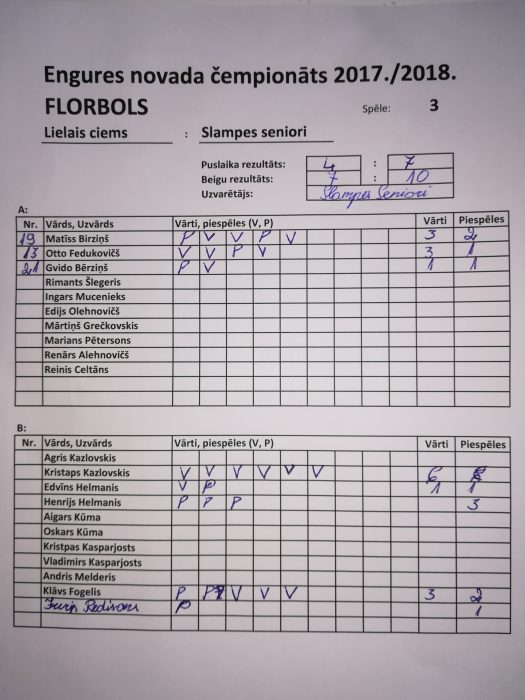 Engures novada čempionāts 2017./2018.
FLORBOLS Spēle: 3
Lielais ciems : Slampes seniori
Puslaika rezultāts: 4 : 7
Beigu rezultāts: 7 : 10
Uzvarētājs: Slampes Seniori
A:
Nr. Vārds, Uzvārds Vārti, piespēles (V, P) Vārti Piespēles
19 Matīss Birziņš P V V P V 3 2
13 Otto Fedukovičš V V P V 3 1
21 Gvido Bērziņš P V 1 1
Rimants Šlegeris
Ingars Mucenieks
Edijs Olehnovičš
Mārtiņš Grečkovskis
Marians Pētersons
Renārs Alehnovičš
Reinis Celtāns
B:
Nr. Vārds, Uzvārds Vārti, piespēles (V, P) Vārti Piespēles
Agris Kazlovskis
Kristaps Kazlovskis V V V V V V 6
Edvīns Helmanis V P 1 1
Henrijs Helmanis P P P 3
Aigars Kūma
Oskars Kūma
Kristpas Kasparjosts
Vladimirs Kasparjosts
Andris Melderis
Klāvs Fogelis P P V V V 3 2
P 1